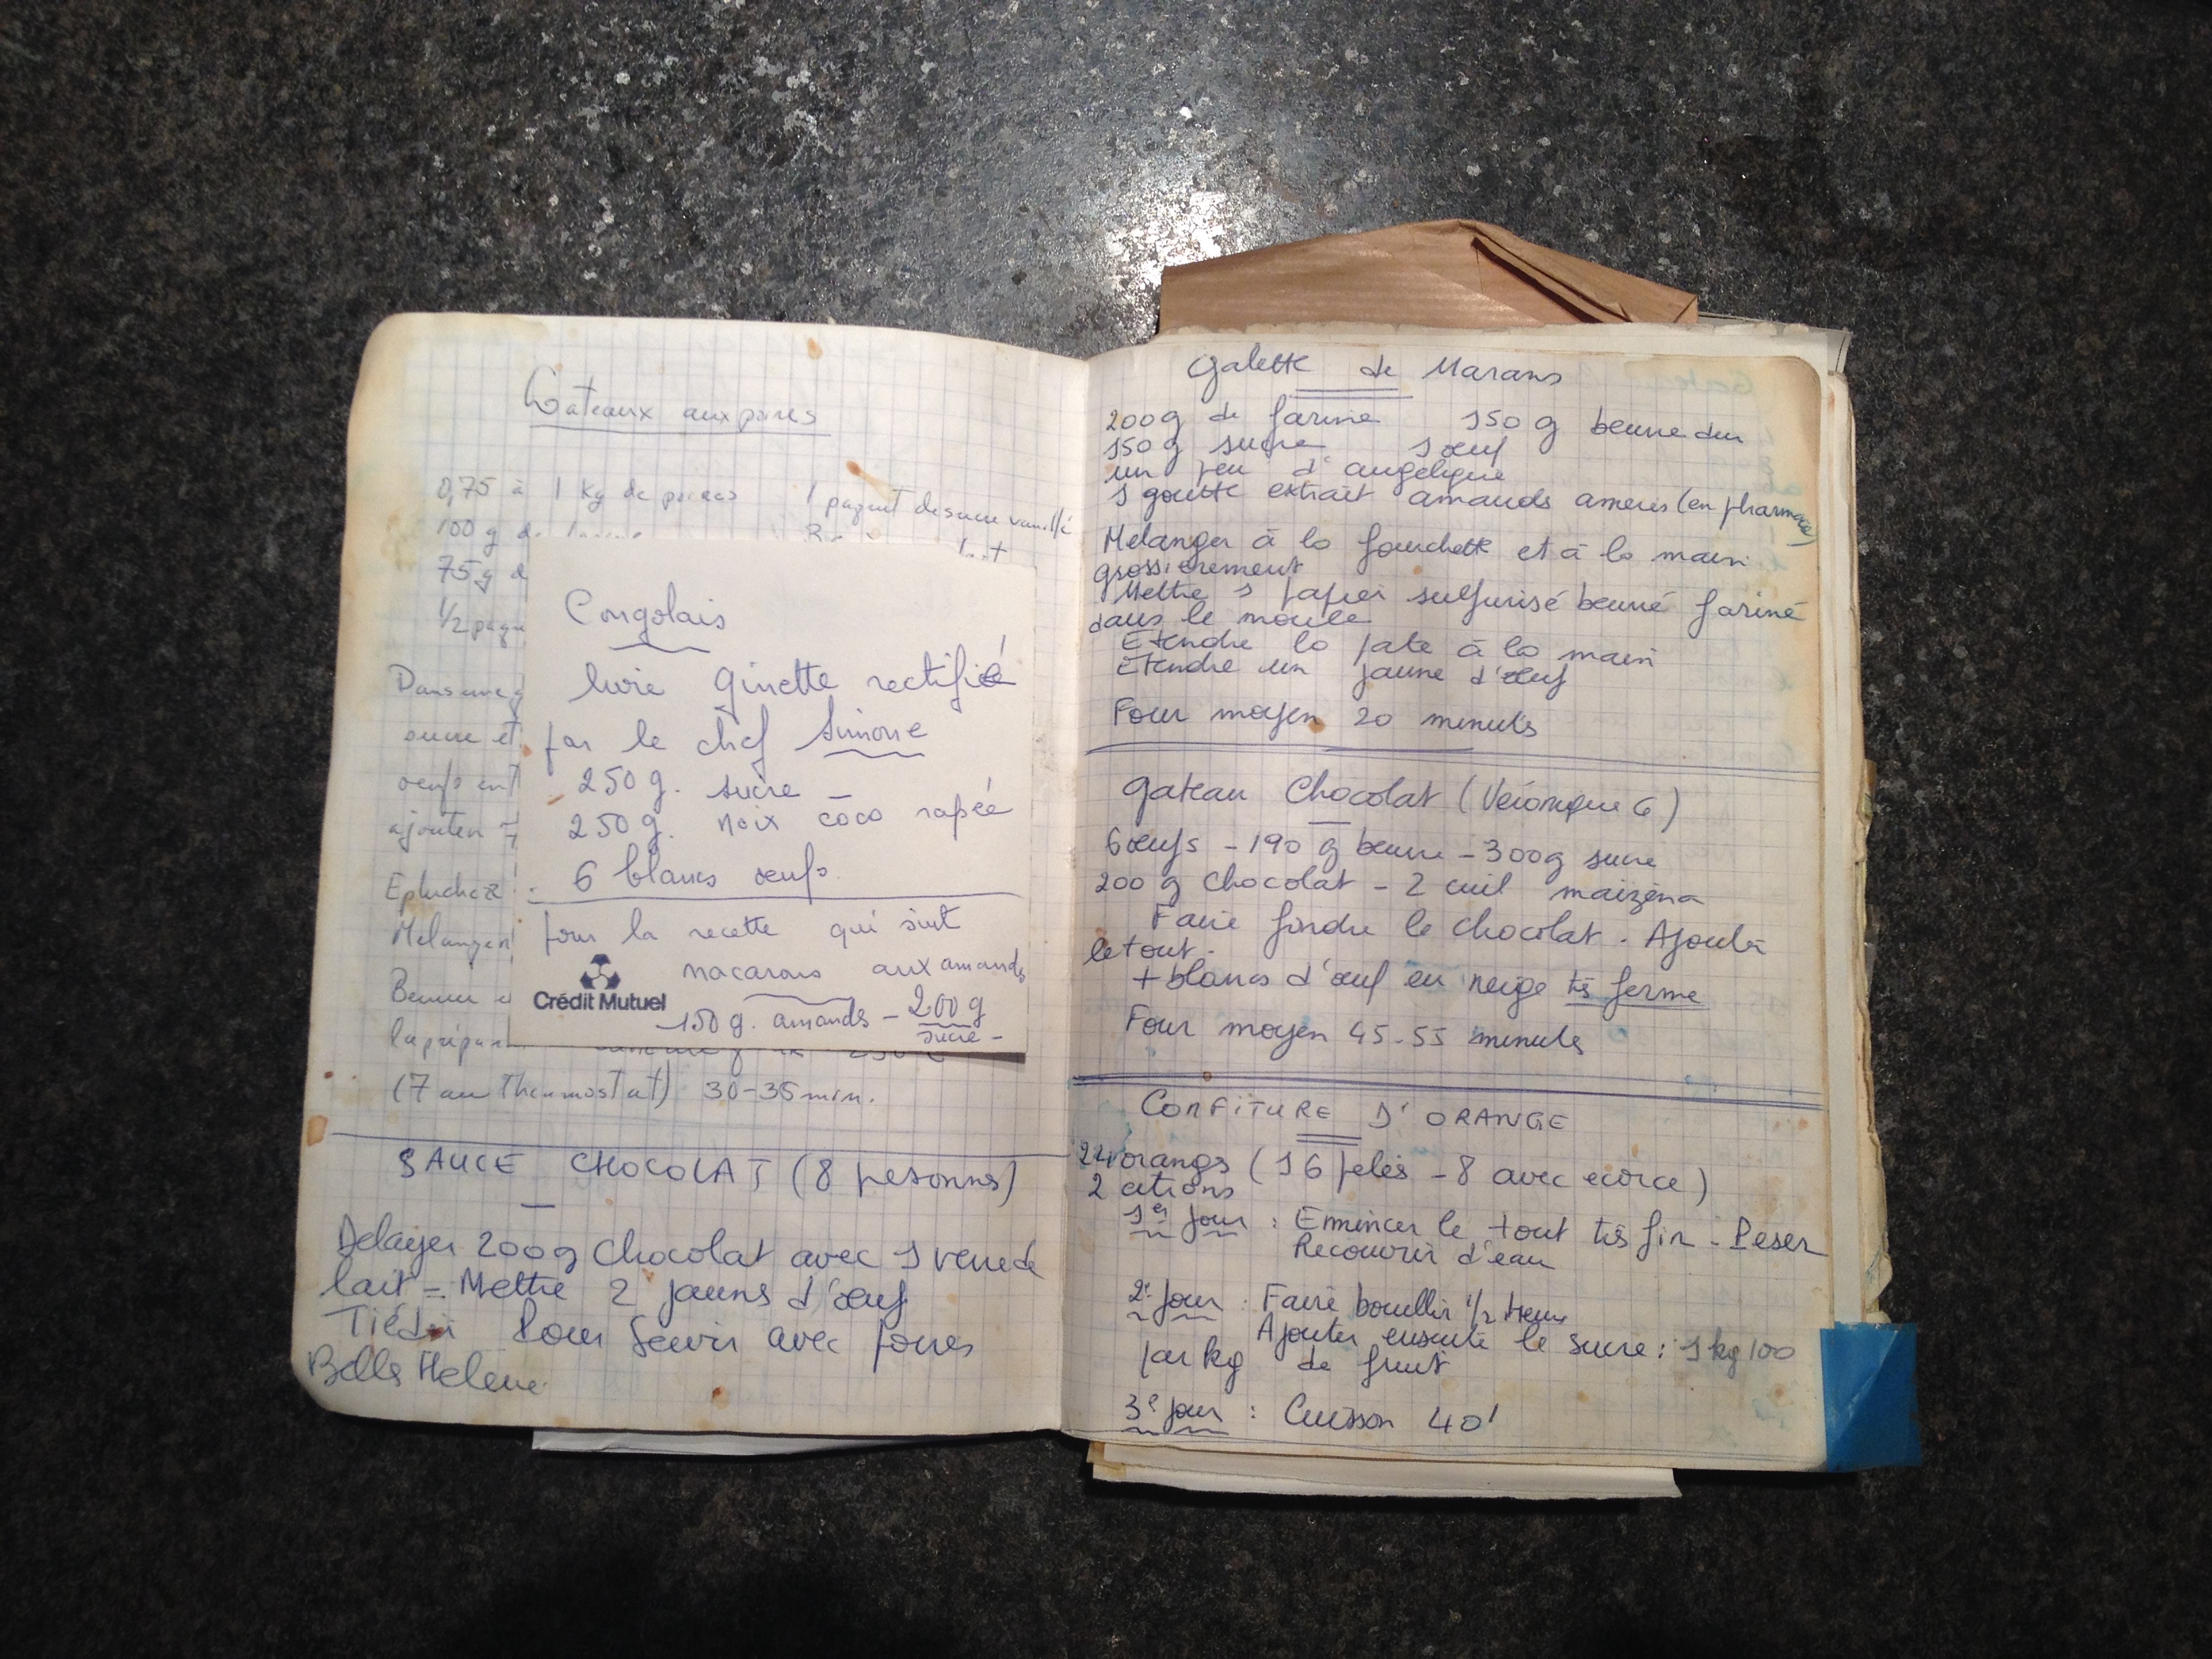 Gateaux aux poires
0,75 à 1 Kg de poires 1 paquet de sucre vanillé
100 g de
75 g d
1/2 paqu
Dans une g
sucre et
oeufs ent
ajouter
Epluchez
Melangez
Beurre
la prépar
(7 au Thermostat) 30-35 min.
Congolais
livre Ginette rectifié
par le chef Simone
250 g. sucre
250 g. noix coco rapée
6 blancs oeufs
pour la recette qui suit
macarons aux amandes
Crédit Mutuel
150 g. amandes - 200 g
sucre -
SAUCE CHOCOLAT (8 personnes)
Delayer 200 g Chocolat avec 1 verre de
lait = Mettre 2 jaunes d'œuf
Tiédir Pour Servir avec poires
Belle Helene
Galette de Marans
200 g de farine 150 g beurre dur
150 g sucre 1 œuf
un peu d'angelique
1 goutte extrait amandes ameres (en pharmacie)
Melanger à la fourchette et à la main
grossierement
Mettre 1 papier sulfurisé beurré fariné
dans le moule
Etendre la pate à la main
Etendre un jaune d'œuf
Four moyen 20 minutes
Gateau Chocolat (Véronique G)
6 œufs - 190 g beurre - 300 g sucre
200 g chocolat - 2 cuil maizena
Faire fondre le chocolat. Ajouter
le tout.
+ blancs d'œuf en neige très ferme
Four moyen 45-55 minutes
CONFITURE D'ORANGE
24 oranges (16 pelées - 8 avec ecorce)
2 citrons
1er jour : Emincer le tout très fin - Peser
Recouvrir d'eau
2e jour : Faire bouillir 1/2 heure
Ajouter ensuite le sucre : 1 kg 100
par kg de fruit
3e jour : Cuisson 40'